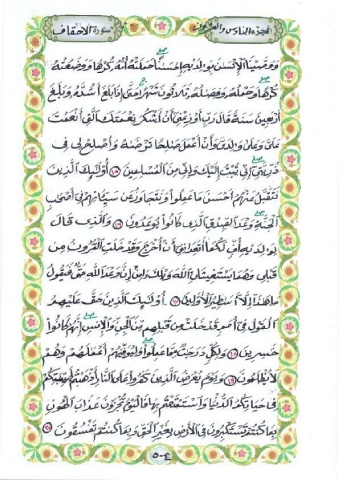 الجزء السادس والعشرون
سورة الأحقاف
ووصينا الإنسن بولديه إحسنا حملته أمه كرها ووضعته
كرها وحمله وفصله ثلثون شهرا حتى إذا بلغ أشده وبلغ
أربعين سنة قال رب أوزعني أن أشكر نعمتك التي أنعمت
علي وعلى ولدي وأن أعمل صلحا ترضه وأصلح لي في
ذريتي إني تبت إليك وإني من المسلمين ١٥ أولئك الذين
نتقبل عنهم أحسن ما عملوا ونتجاوز عن سيئاتهم في أصحب
الجنة وعد الصدق الذي كانوا يوعدون ١٦ والذي قال
لولديه أف لكما أتعدانني أن أخرج وقد خلت القرون من
قبلي وهما يستغيثان الله ويلك ءامن إن وعد الله حق فيقول
ما هذا إلا أسطير الأولين ١٧ أولئك الذين حق عليهم
القول في أمم قد خلت من قبلهم من الجن والإنس إنهم كانوا
خسرين ١٨ ولكل درجت مما عملوا وليوفيهم أعملهم وهم
لا يظلمون ١٩ ويوم يعرض الذين كفروا على النار أذهبتم طيبتكم
في حياتكم الدنيا واستمتعتم بها فاليوم تجزون عذاب الهون
بما كنتم تستكبرون في الأرض بغير الحق وبما كنتم تفسقون ٢٠
٥٠٤